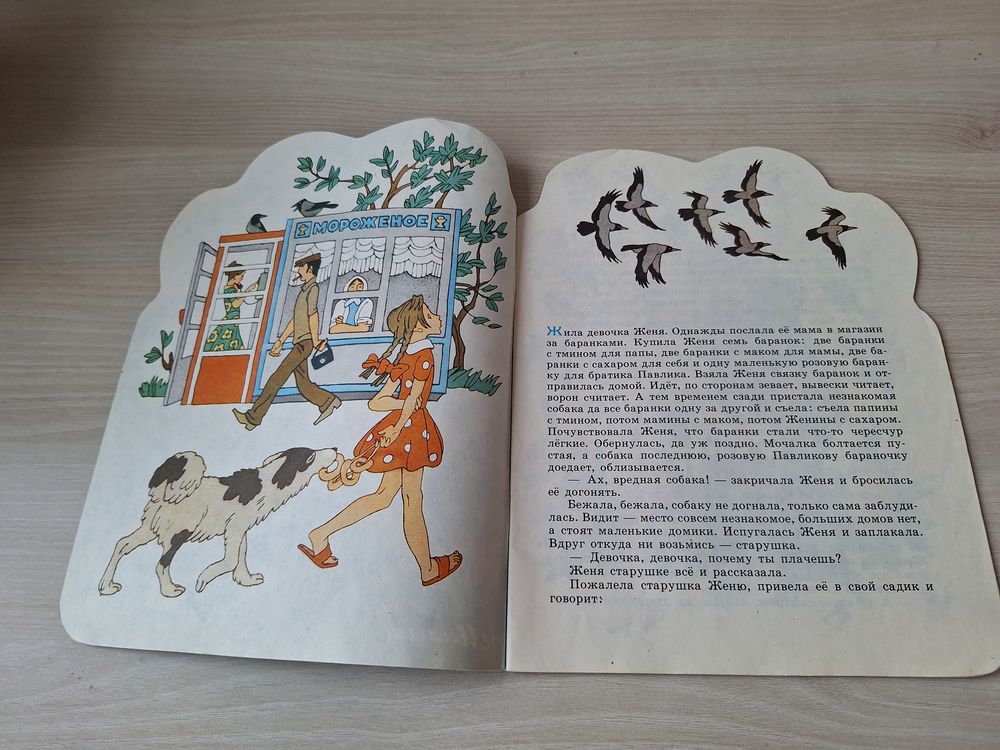 МОРОЖЕНОЕ
Жила девочка Женя. Однажды послала её мама в магазин
за баранками. Купила Женя семь баранок: две баранки
с тмином для папы, две баранки с маком для мамы, две ба-
ранки с сахаром для себя и одну маленькую розовую баран-
ку для братика Павлика. Взяла Женя связку баранок и от-
правилась домой. Идёт, по сторонам зевает, вывески читает,
ворон считает. А тем временем сзади пристала незнакомая
собака да все баранки одну за другой и съела: съела папины
с тмином, потом мамины с маком, потом Женины с сахаром.
Почувствовала Женя, что баранки стали что-то чересчур
лёгкие. Обернулась, да уж поздно. Мочалка болтается пу-
стая, а собака последнюю, розовую Павликову бараночку
доедает, облизывается.
— Ах, вредная собака! — закричала Женя и бросилась
её догонять.
Бежала, бежала, собаку не догнала, только сама заблуди-
лась. Видит — место совсем незнакомое, больших домов нет,
а стоят маленькие домики. Испугалась Женя и заплакала.
Вдруг откуда ни возьмись — старушка.
— Девочка, девочка, почему ты плачешь?
Женя старушке всё и рассказала.
Пожалела старушка Женю, привела её в свой садик и
говорит: